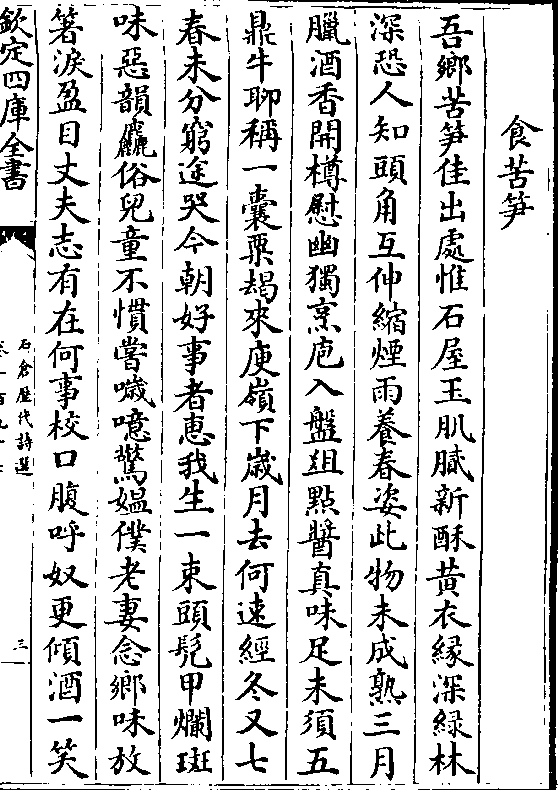 食苦笋
吾鄉苦笋佳出處惟石屋玉肌膩新酥黄衣縁深緑林
深恐人知頭角互伸縮煙雨養春姿此物未成熟三月
臘酒香開樽慰幽獨烹庖入盤俎點醬真味足未須五
鼎牛聊稱一囊粟朅來庾嶺下歲月去何速經冬又七
春未分窮途哭今朝好事者惠我生一束頭髠甲斕斑
味惡韻麤俗兒童不慣嘗噦噫驚媪僕老妻念鄉味放
箸淚盈目丈夫志有在何事校口腹呼奴更傾酒一笑
欽定四庫全書
石倉歷代詩選
三